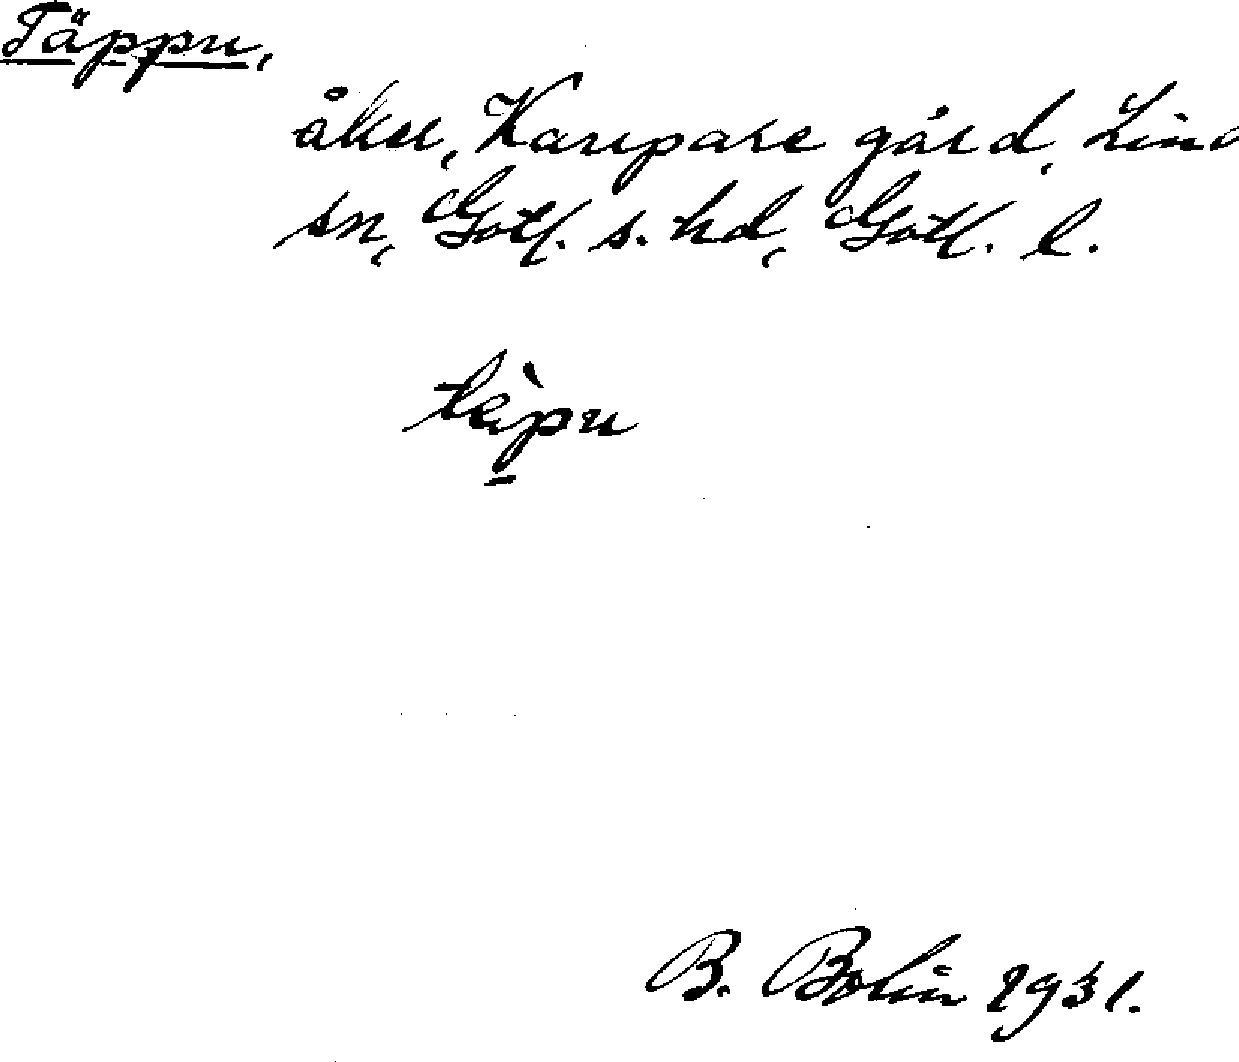 Täppu,
åker, Kaupare gård, Lind
sn, Gotl. s. hd, Gotl. l.
tæ̀pu
B. Bolin 1931.